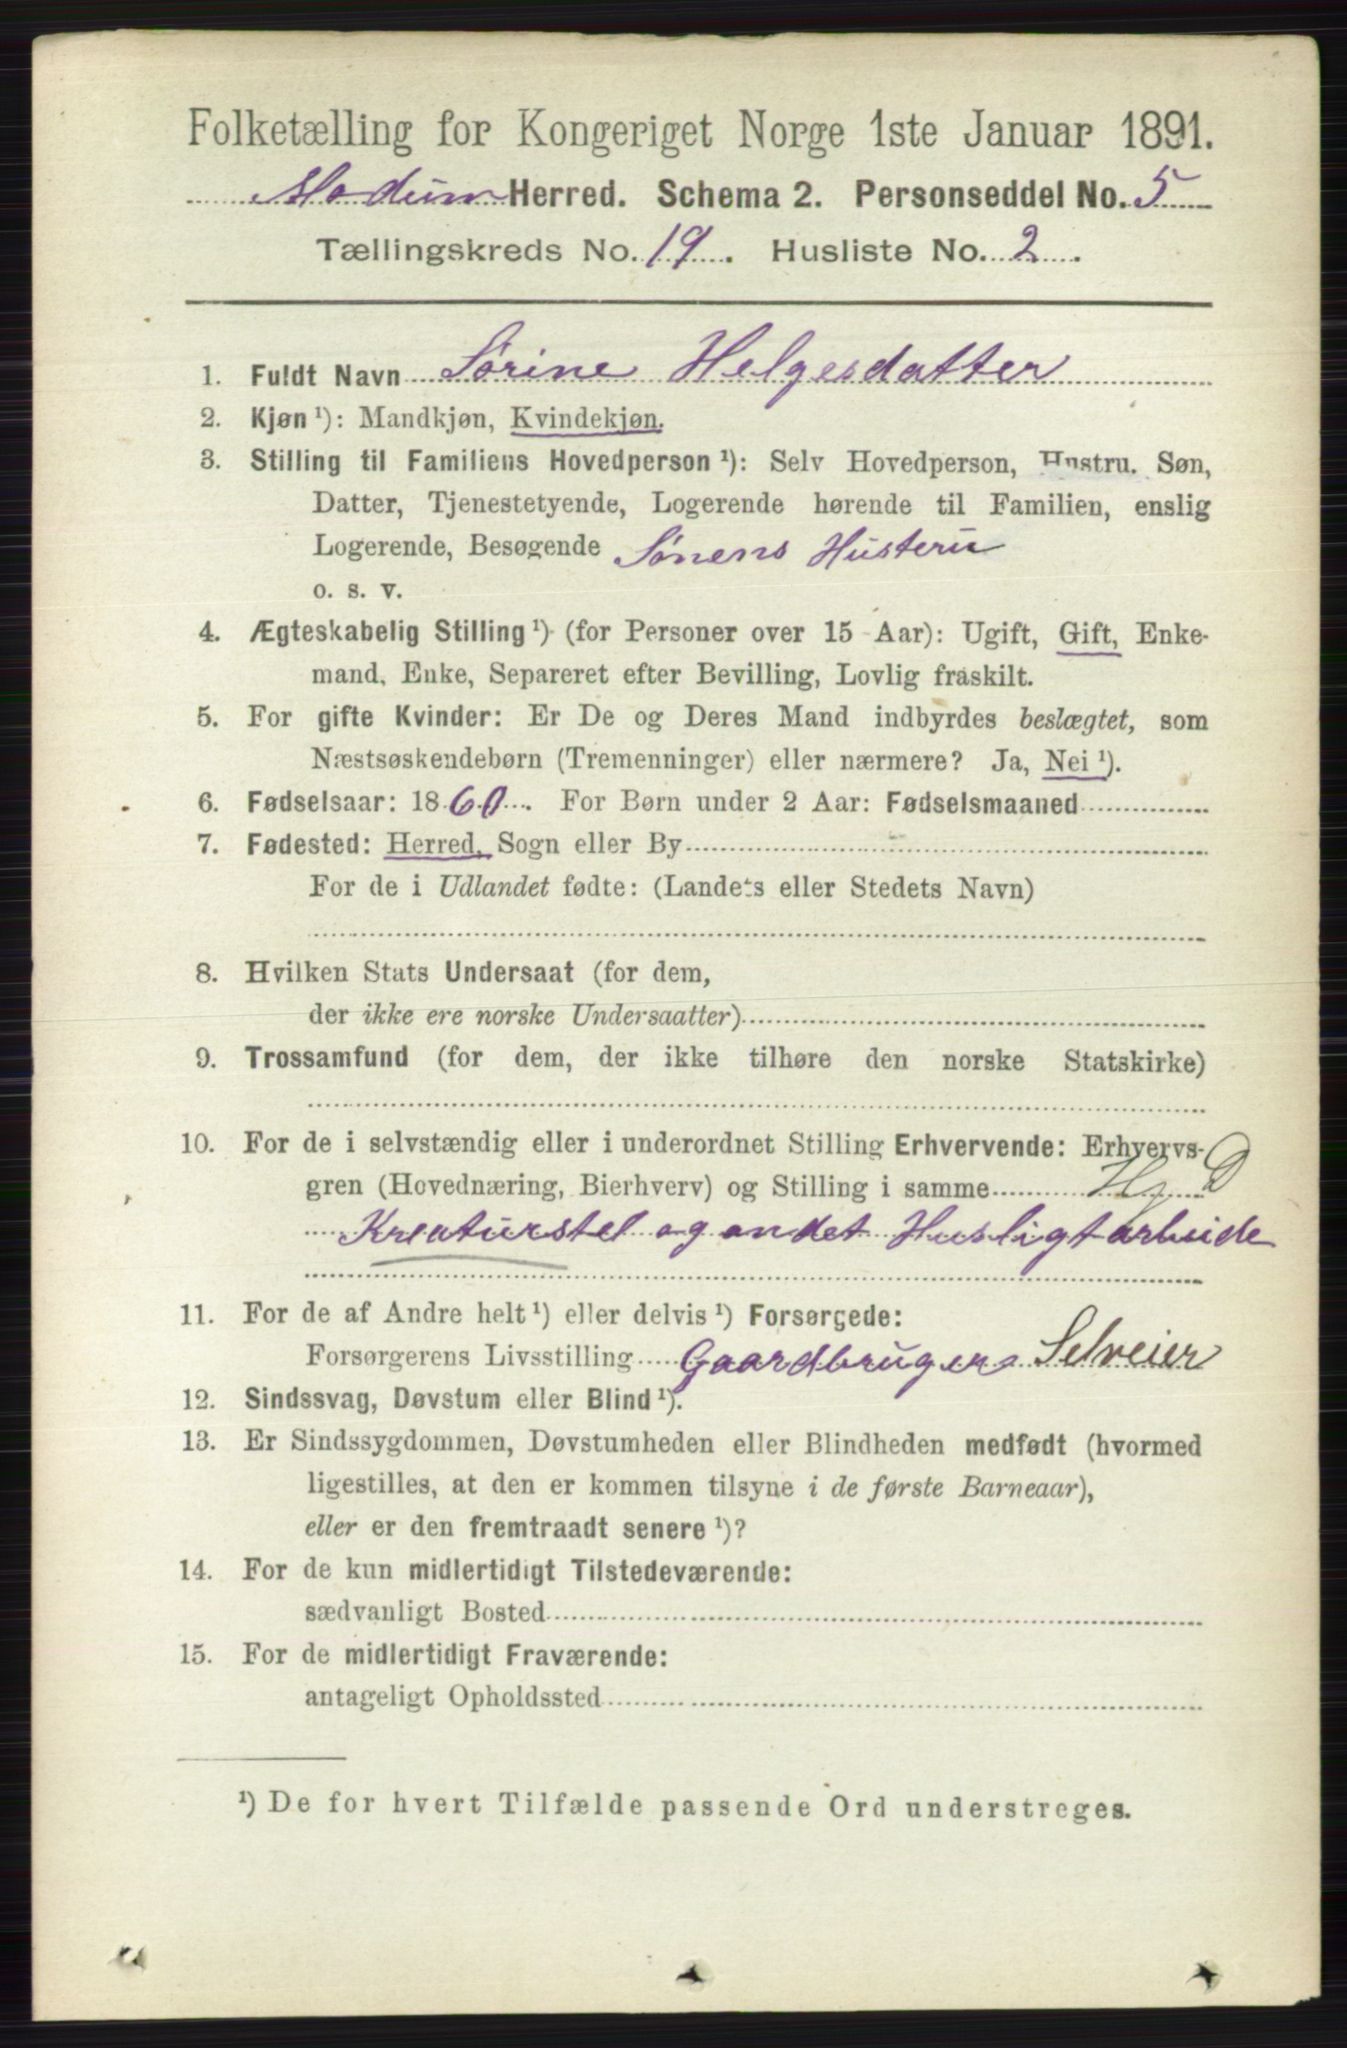 Folketælling for Kongeriget Norge 1ste Januar 1891.
Modum Herred. Schema 2. Personseddel No. 5
Tællingskreds No. 19. Husliste No. 2.
1. Fuldt Navn Sørine Helgesdatter
2. Kjøn ¹): Mandkjøn, Kvindekjøn.
3. Stilling til Familiens Hovedperson ¹): Selv Hovedperson, Hustru, Søn,
Datter, Tjenestetyende, Logerende hørende til Familien, enslig
Logerende, Besøgende Sønens Husteru
o. s. v.
4. Ægteskabelig Stilling ¹) (for Personer over 15 Aar): Ugift, Gift, Enke-
mand, Enke, Separeret efter Bevilling, Lovlig fraskilt.
5. For gifte Kvinder: Er De og Deres Mand indbyrdes beslægtet, som
Næstsøskendebørn (Tremenninger) eller nærmere? Ja, Nei ¹).
6. Fødselsaar: 1860. For Børn under 2 Aar: Fødselsmaaned
7. Fødested: Herred, Sogn eller By
For de i Udlandet fødte: (Landets eller Stedets Navn)
8. Hvilken Stats Undersaat (for dem,
der ikke ere norske Undersaatter)
9. Trossamfund (for dem, der ikke tilhøre den norske Statskirke)
10. For de i selvstændig eller i underordnet Stilling Erhvervende: Erhvervs-
gren (Hovednæring, Bierhverv) og Stilling i samme Hg D
Kreaturstel og andet Husligtarbeide
11. For de af Andre helt ¹) eller delvis ¹) Forsørgede:
Forsørgerens Livsstilling Gaardbrugers Selveier
12. Sindssvag, Døvstum eller Blind ¹).
13. Er Sindssygdommen, Døvstumheden eller Blindheden medfødt (hvormed
ligestilles, at den er kommen tilsyne i de første Barneaar),
eller er den fremtraadt senere ¹)?
14. For de kun midlertidigt Tilstedeværende:
sædvanligt Bosted
15. For de midlertidigt Fraværende:
antageligt Opholdssted
¹) De for hvert Tilfælde passende Ord understreges.